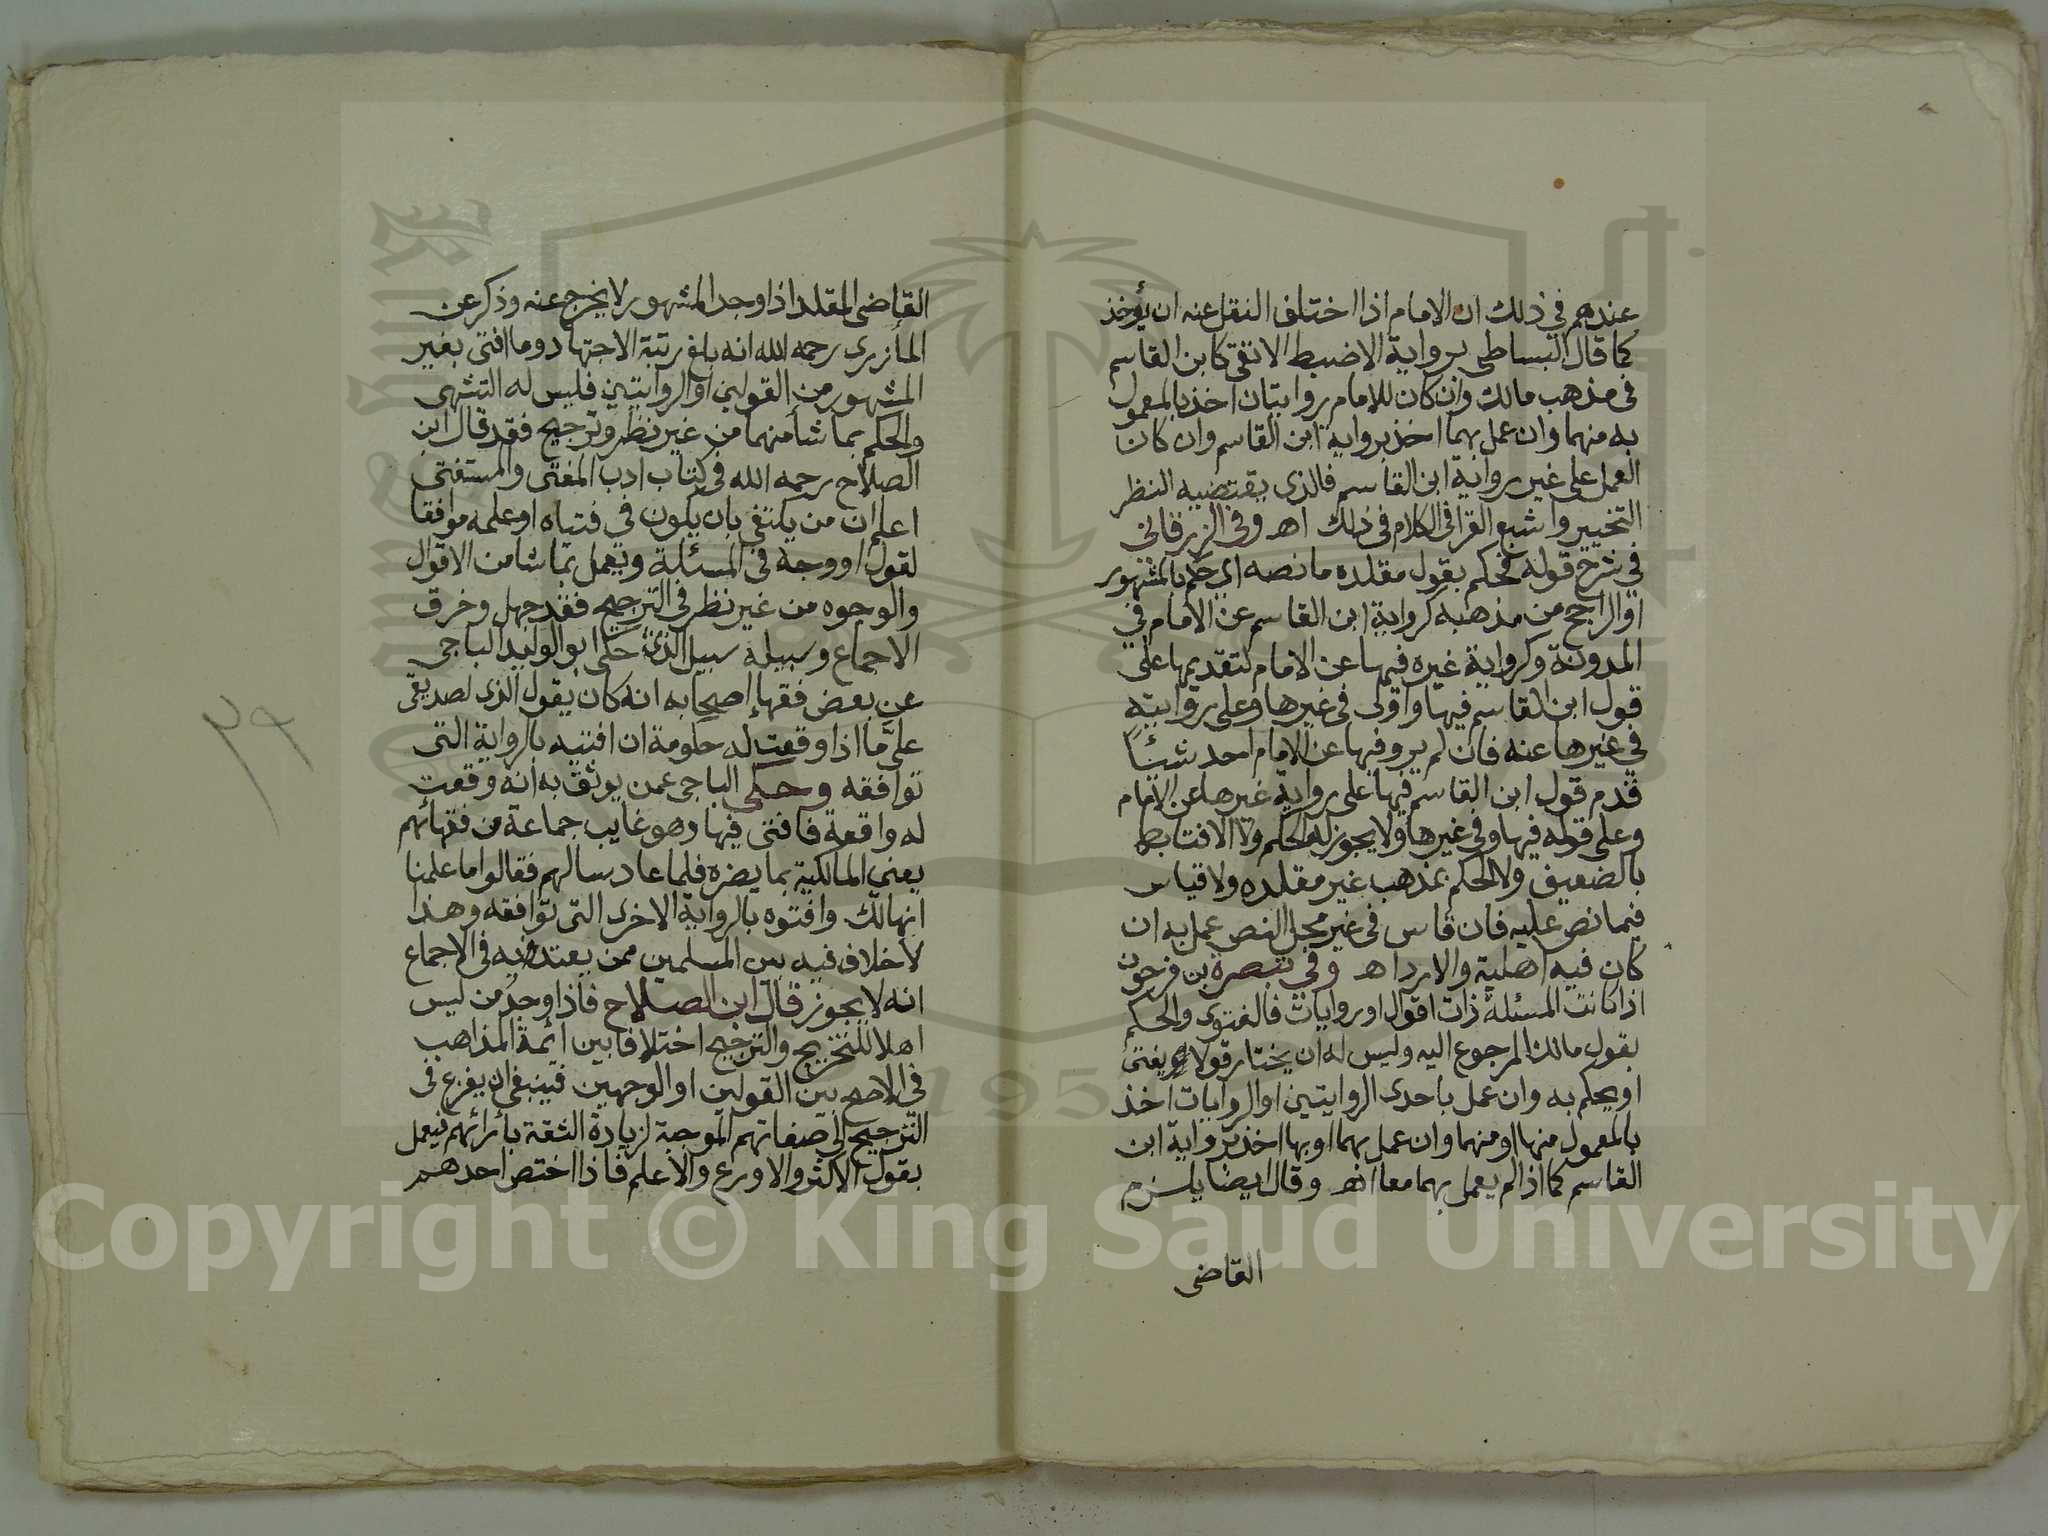 عندهم في ذلك ان الامام اذا اختلف النقل عنه ان يؤخذ
كما قال البساطى برواية الاضبط الاتقى كابن القاسم
فى مذهب مالك وان كان للامام روايتان اخذ بالمعمول
به منهما وان عمل بهما اخذ برواية ابن القاسم وان كان
العمل على غير رواية ابن القاسم فالذى يقتضيه النظر
التخيير واشبع القرافى الكلام فى ذلك اهـ وفى الزرقانى
في شرح قوله فحكم بقول مقلده ما نصه اى حكم بالمشهور
او الراجح من مذهبه كرواية ابن القاسم عن الامام في
المدونة وكرواية غيره فيها عن الامام لتقديمها على
قول ابن القاسم فيها واولى فى غيرها وعلى روايته
في غيرها عنه فان لم يرو فيها عن الامام احد شيئا
قدم قول ابن القاسم فيها على رواية غيرها عن الامام
وعلى قوله فيها وفى غيرها ولا يجوز له الحكم ولا الافتا بكا
بالضعيف ولا الحكم بمذهب غير مقلده ولا قياس
فيما نص عليه فان قاس فى غير محل النص عمل به ان
كان فيه اهلية والا رد اهـ وفي تبصرة بن فرحون
اذا كانت المسئلة ذات اقوال او روايات فالفتوى والحكم
بقول مالك المرجوع اليه وليس له ان يختار قولا يفتى
او يحكم به وان عمل باحدى الروايتين او الروايات اخذ
بالمعمول منها او منهما وان عمل بهما او بها اخذ برواية ابن
القاسم كما اذا لم يعمل بهما معا اهـ وقال ايضا يلزم
القاضى
القاضى المقلد اذا وجد المشهور لا يخرج عنه وذكر عن
المازرى رحمه الله انه بلغ رتبة الاجتهاد وما افتى بغير
المشهور من القولين او الروايتين فليس له التشهى
والحكم بما شا منهما من غير نظر وترجيح فقد قال ابن
الصلاح رحمه الله فى كتاب ادب المفتى والمستفتى
اعلم ان من يكتفى بان يكون فى فتياه او علمه موافقا
لقول او وجه فى المسئلة ويعمل بما شا من الاقوال
والوجوه من غير نظر فى الترجيح فقد جهل وخرق
الاجماع وسبيله سبيل الذى حكى ابو الوليد الباجى
عن بعض فقها اصحابه انه كان يقول الذى لصديقى
علىّ ما اذا وقعت له حكومة ان افتيه بالرواية التى
توافقه وحكى الباجى عمن يوثق به انه وقعت
له واقعة فافتى فيها وهو غايب جماعة من فقهائهم
يعنى المالكية بما يضره فلما عاد سالهم فقالوا ما علمنا
انها لك وافتوه بالرواية الاخرى التى توافقه وهذا
لا خلاف فيه بين المسلمين ممن يعتد به فى الاجماع
انه لا يجوز قال ابن الصلاح فاذا وجد من ليس
اهلا للتخريج والترجيح اختلافا بين ائمة المذاهب
فى الاصح بين القولين او الوجهين فينبغى ان يفزع فى
الترجيح الى صفاتهم الموجبة لزيادة الثقة بارائهم فيعمل
بقول الاكثر والاورع والاعلم فاذا اختص احدهم
٢٩
1957
Copyright © King Saud University